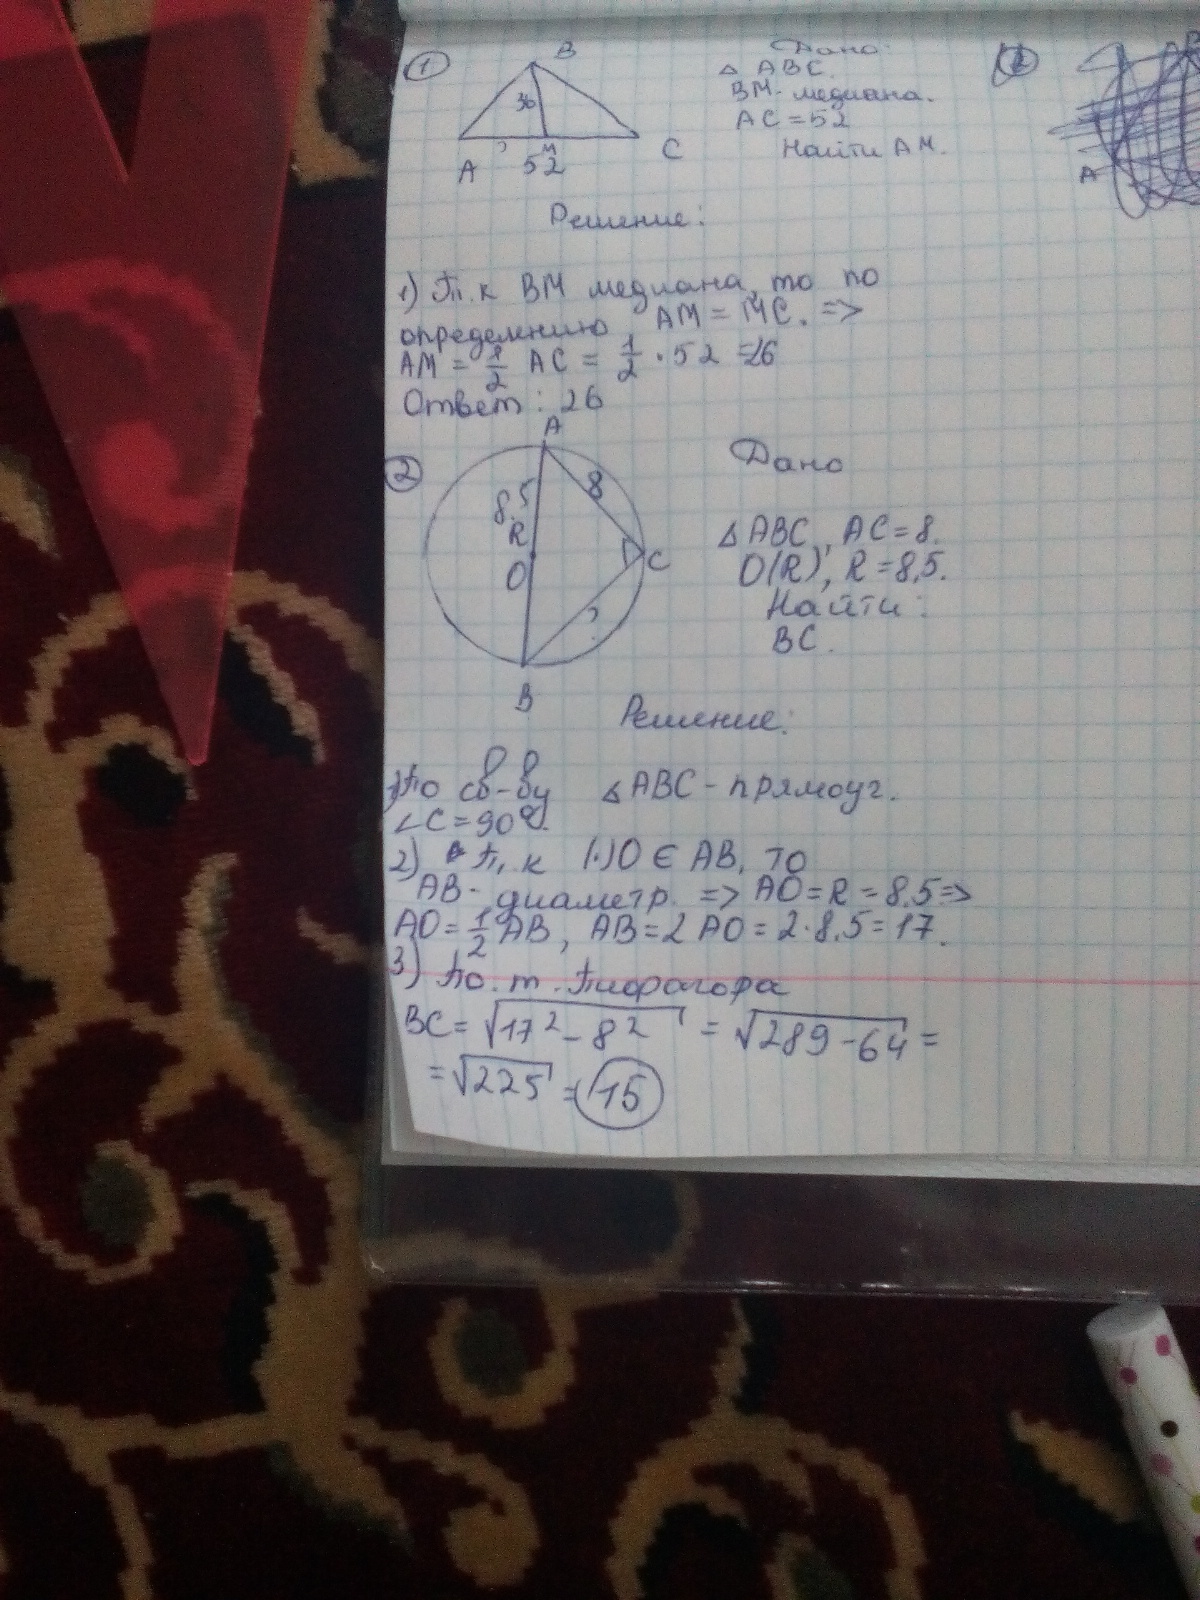 1
B
36
A
M
52
C
Дано:
△ ABC.
BM - медиана.
AC = 52
Найти AM.
A
Решение:
1) Т.к BM медиана, то по
определению, AM = MC. =>
AM = 1/2 AC = 1/2 · 52 = 26
Ответ: 26
2
A
8,5
R
O
8
C
?
B
Дано
△ ABC, AC = 8.
O(R), R = 8,5.
Найти:
BC.
Решение:
1) По св-ву △ ABC - прямоуг.
∠C = 90°.
2) Т.к (·)O ∈ AB, то
AB - диаметр. => AO = R = 8,5 =>
AO = 1/2 AB, AB = 2 AO = 2 · 8,5 = 17.
3) По. т. Пифагора
BC = √17² - 8² = √289 - 64 =
= √225 = 15